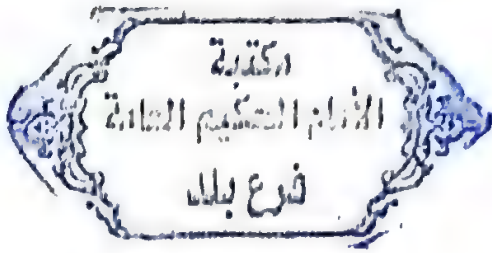 مكتبة
الأمام الحكيم العامة
فرع بلد